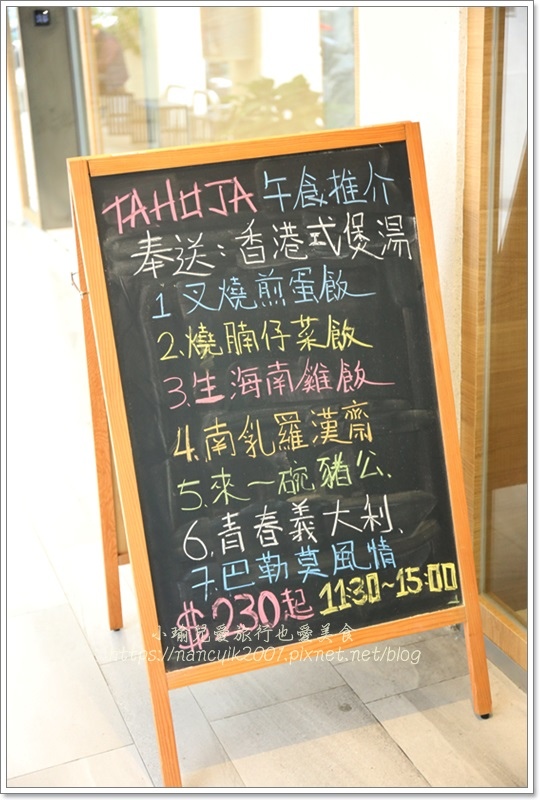 TAHOJA 午食推介
奉送:香港式煲湯
1 叉燒煎蛋飯
2.燒腩仔菜飯
3.生海南雞飯
4.南乳羅漢齋
5.來一碗豬公.
6.青春義大利.
7.巴勒莫風情
$230起 11:30~15:00
小瑜兒愛旅行也愛美食
https://nancylk2007.pixnet.net/blog